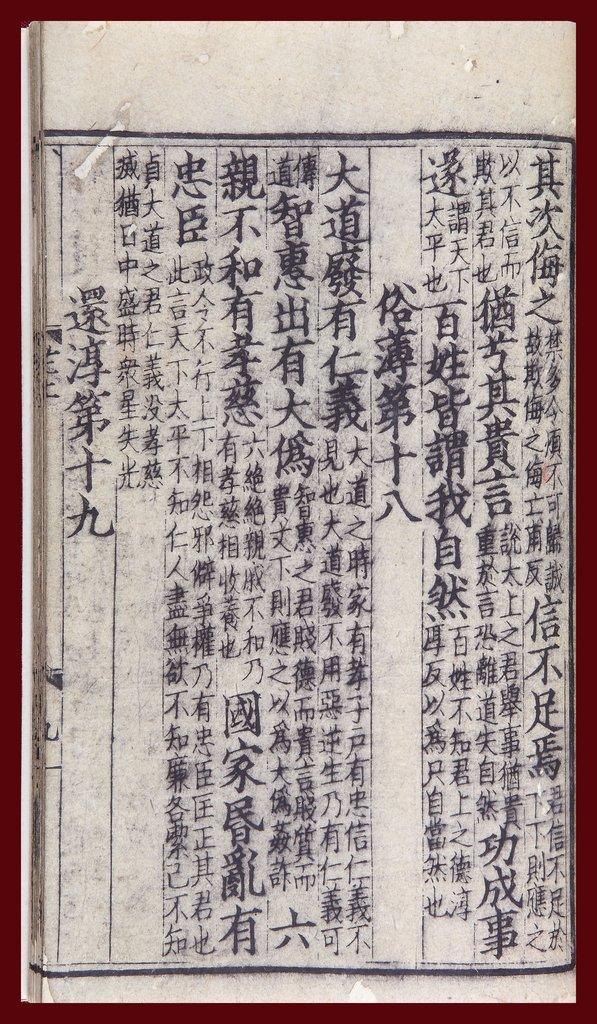 其次侮之禁多令煩不可歸誠故欺侮之侮亡甫反信不足焉君信不足於下下則應之
以不信而欺其君也猶兮其貴言說太上之君舉事猶貴重於言恐離道失自然功成事
遂謂天下太平也百姓皆謂我自然百姓不知君上之德淳厚反以爲只自當然也
俗薄第十八
大道廢有仁義大道之時家有孝子戸有忠信仁義不見也大道廢不用惡逆生乃有仁義可
傳道智惠出有大偽智惠之君賤德而貴言賤質而貴文下則應之以爲大偽姦詐六
親不和有孝慈六絕絕親戚不和乃有孝慈相收養也國家昬亂有
忠臣政令不行上下相怨邪僻爭權乃有忠臣匡正其君也此言天下太平不知仁人盡無欲不知廉各絜己不知
貞大道之君仁義没孝慈滅猶日中盛時衆星失光
還淳第十九
九